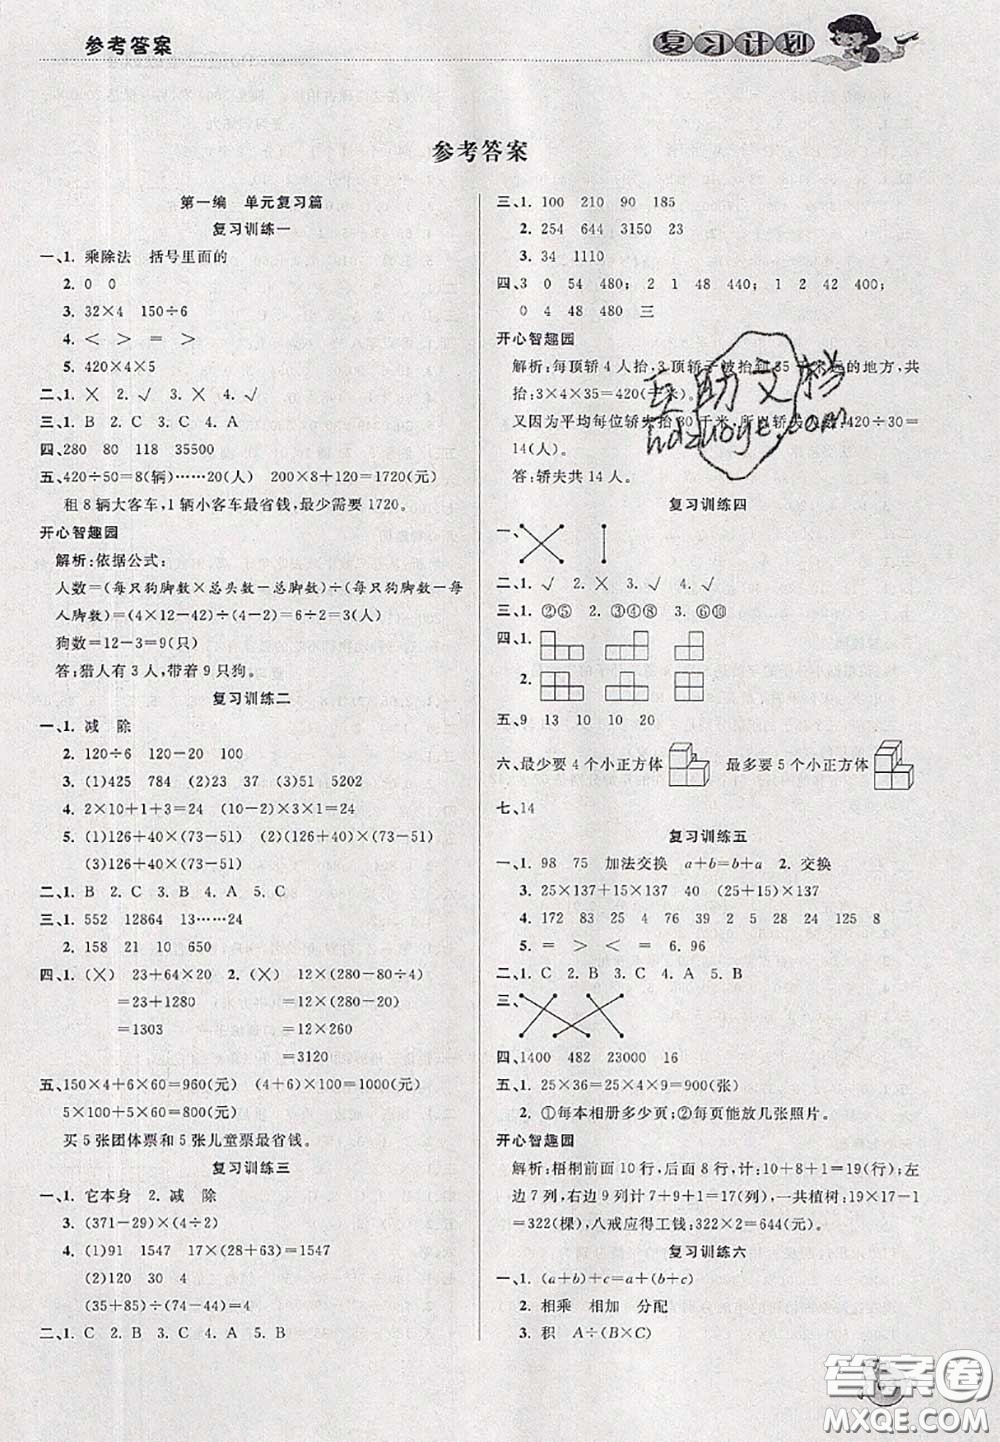 参考答案
复习计划
参考答案
第一编 单元复习篇
复习训练一
一、1. 乘除法 括号里面的
2. 0 0
3. 32×4 150÷6
4. < > = >
5. 420×4×5
二、1. × 2. √ 3. × 4. √
三、1. B 2. C 3. C 4. A
四、280 80 118 35500
五、420÷50=8(辆)……20(人) 200×8+120=1720(元)
租 8 辆大客车,1 辆小客车最省钱,最少需要 1720。
开心智趣园
解析:依据公式:
人数=(每只狗脚数×总头数-总脚数)÷(每只狗脚数-每
人脚数)=(4×12-42)÷(4-2)=6÷2=3(人)
狗数=12-3=9(只)
答:猎人有 3 人,带着 9 只狗。
复习训练二
一、1. 减 除
2. 120÷6 120-20 100
3. (1)425 784 (2)23 37 (3)51 5202
4. 2×10+1+3=24 (2×10-8)×2=24
5. (1)126+40×(73-51) (2)(126+40)×(73-51)
(3)(126+40)×73-51
二、1. B 2. C 3. B 4. A 5. C
三、1. 552 12864 13……24
2. 158 21 10 650
四、1. (×) 23+64×20 2. (×) 12×(280-80÷4)
=23+1280 =12×(280-20)
=1303 =12×260
=3120
五、150×4+6×60=960(元) (4+6)×100=1000(元)
5×100+5×60=800(元)
买 5 张团体票和 5 张儿童票最省钱。
复习训练三
一、1. 它本身 2. 减 除
3. (371-29)×(4÷2)
4. (1)91 1547 17×(28+63)=1547
(2)120 30 4
(35+85)÷(74-44)=4
二、1. C 2. B 3. C 4. A 5. B
三、1. 100 210 90 185
2. 254 644 3150 23
3. 34 1110
四、3 0 54 480; 2 1 48 480; 1 2 42 400;
0 4 48 480 三
开心智趣园
解析:每顶轿 4 人抬,3 顶轿子被抬到 35 千米远的地方,共
抬:3×4×35=420(千米)。
又因为平均每位轿夫抬 30 千米,所以轿夫为:420÷30=
14(人)。
答:轿夫共 14 人。
互助文档
hdzuoye.com
复习训练四
一、
二、1. √ 2. × 3. √ 4. √
三、1. ②⑤ 2. ①③④⑧ 3. ⑥⑩
四、1.
2.
五、9 13 10 10 20
六、最少要 4 个小正方体 最多要 5 个小正方体
七、14
复习训练五
一、1. 98 75 加法交换 a+b=b+a 2. 交换
3. 25×137+15×137 40 (25+15)×137
4. 172 83 25 4 28 24 8 125 8
5. = > < = 6. 96
二、1. C 2. B 3. C 4. B 5. B
三、
四、1400 482 23000 16
五、1. 25×36=25×4×9=900(张)
2. ①每本相册多少页;②每页能放几张照片。
开心智趣园
解析:梧桐前面 10 行,后面 8 行,计:10+8+1=19(行);左
边 7 列,右边 9 列计 7+9+1=17(列),一共植树:19×17-1
=322(棵),八戒应得工钱:322×2=644(元)。
复习训练六
一、1. (a+b)+c=a+(b+c)
2. 相乘 相加 分配
3. 积 A÷(B×C)
答案卷
MXQE.COM